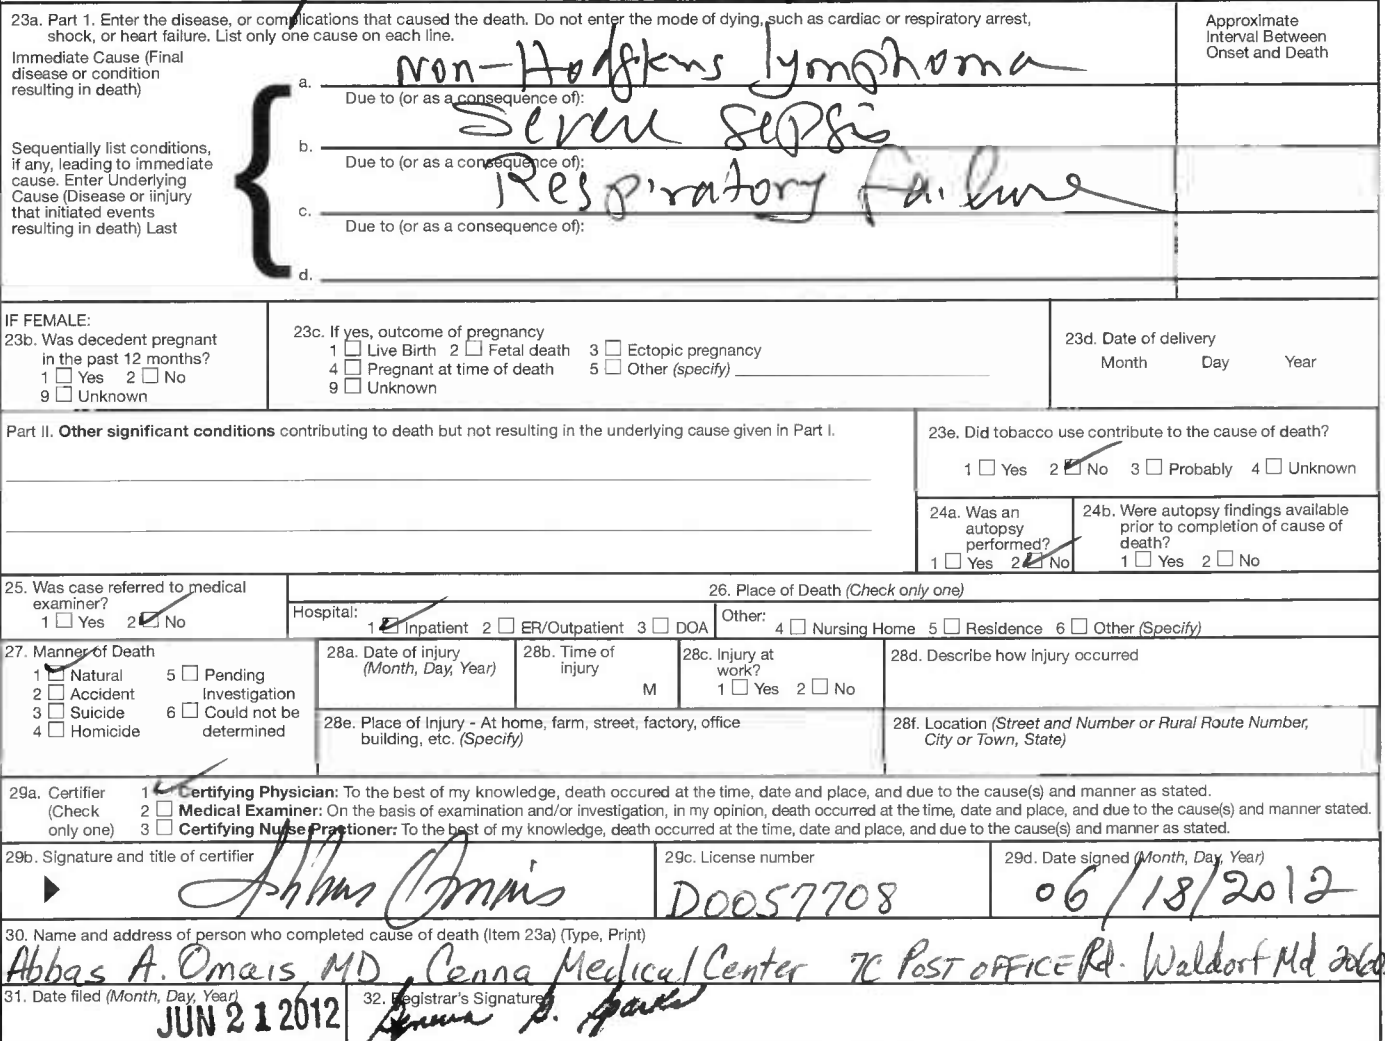 23a. Part 1. Enter the disease, or complications that caused the death. Do not enter the mode of dying, such as cardiac or respiratory arrest,
shock, or heart failure. List only one cause on each line.
Approximate
Interval Between
Onset and Death
Immediate Cause (Final
disease or condition
resulting in death)
a. Non-Hodgkins lymphoma
Due to (or as a consequence of):
b. Severe sepsis
Sequentially list conditions,
if any, leading to immediate
cause. Enter Underlying
Cause (Disease or iinjury
that initiated events
resulting in death) Last
Due to (or as a consequence of):
c. Respiratory failure
Due to (or as a consequence of):
d.
IF FEMALE:
23b. Was decedent pregnant
in the past 12 months?
1 Yes 2 No
9 Unknown
23c. If yes, outcome of pregnancy
1 Live Birth 2 Fetal death 3 Ectopic pregnancy
4 Pregnant at time of death 5 Other (specify)
9 Unknown
23d. Date of delivery
Month Day Year
Part II. Other significant conditions contributing to death but not resulting in the underlying cause given in Part I.
23e. Did tobacco use contribute to the cause of death?
1 Yes 2 No 3 Probably 4 Unknown
24a. Was an
autopsy
performed?
1 Yes 2 No
24b. Were autopsy findings available
prior to completion of cause of
death?
1 Yes 2 No
25. Was case referred to medical
examiner?
1 Yes 2 No
26. Place of Death (Check only one)
Hospital: 1 Inpatient 2 ER/Outpatient 3 DOA
Other: 4 Nursing Home 5 Residence 6 Other (Specify)
27. Manner of Death
1 Natural 5 Pending
2 Accident Investigation
3 Suicide 6 Could not be
4 Homicide determined
28a. Date of injury
(Month, Day, Year)
28b. Time of
injury
M
28c. Injury at
work?
1 Yes 2 No
28d. Describe how injury occurred
28e. Place of Injury - At home, farm, street, factory, office
building, etc. (Specify)
28f. Location (Street and Number or Rural Route Number,
City or Town, State)
29a. Certifier
(Check
only one)
1 Certifying Physician: To the best of my knowledge, death occured at the time, date and place, and due to the cause(s) and manner as stated.
2 Medical Examiner: On the basis of examination and/or investigation, in my opinion, death occurred at the time, date and place, and due to the cause(s) and manner stated.
3 Certifying Nurse Practioner: To the best of my knowledge, death occurred at the time, date and place, and due to the cause(s) and manner as stated.
29b. Signature and title of certifier
Abbas Omais
29c. License number
D0057708
29d. Date signed (Month, Day, Year)
06/18/2012
30. Name and address of person who completed cause of death (Item 23a) (Type, Print)
Abbas A. Omais MD, Cenna Medical Center 7C POST OFFICE Rd. Waldorf Md
31. Date filed (Month, Day, Year)
JUN 21 2012
32. Registrar's Signature
S. Sparks